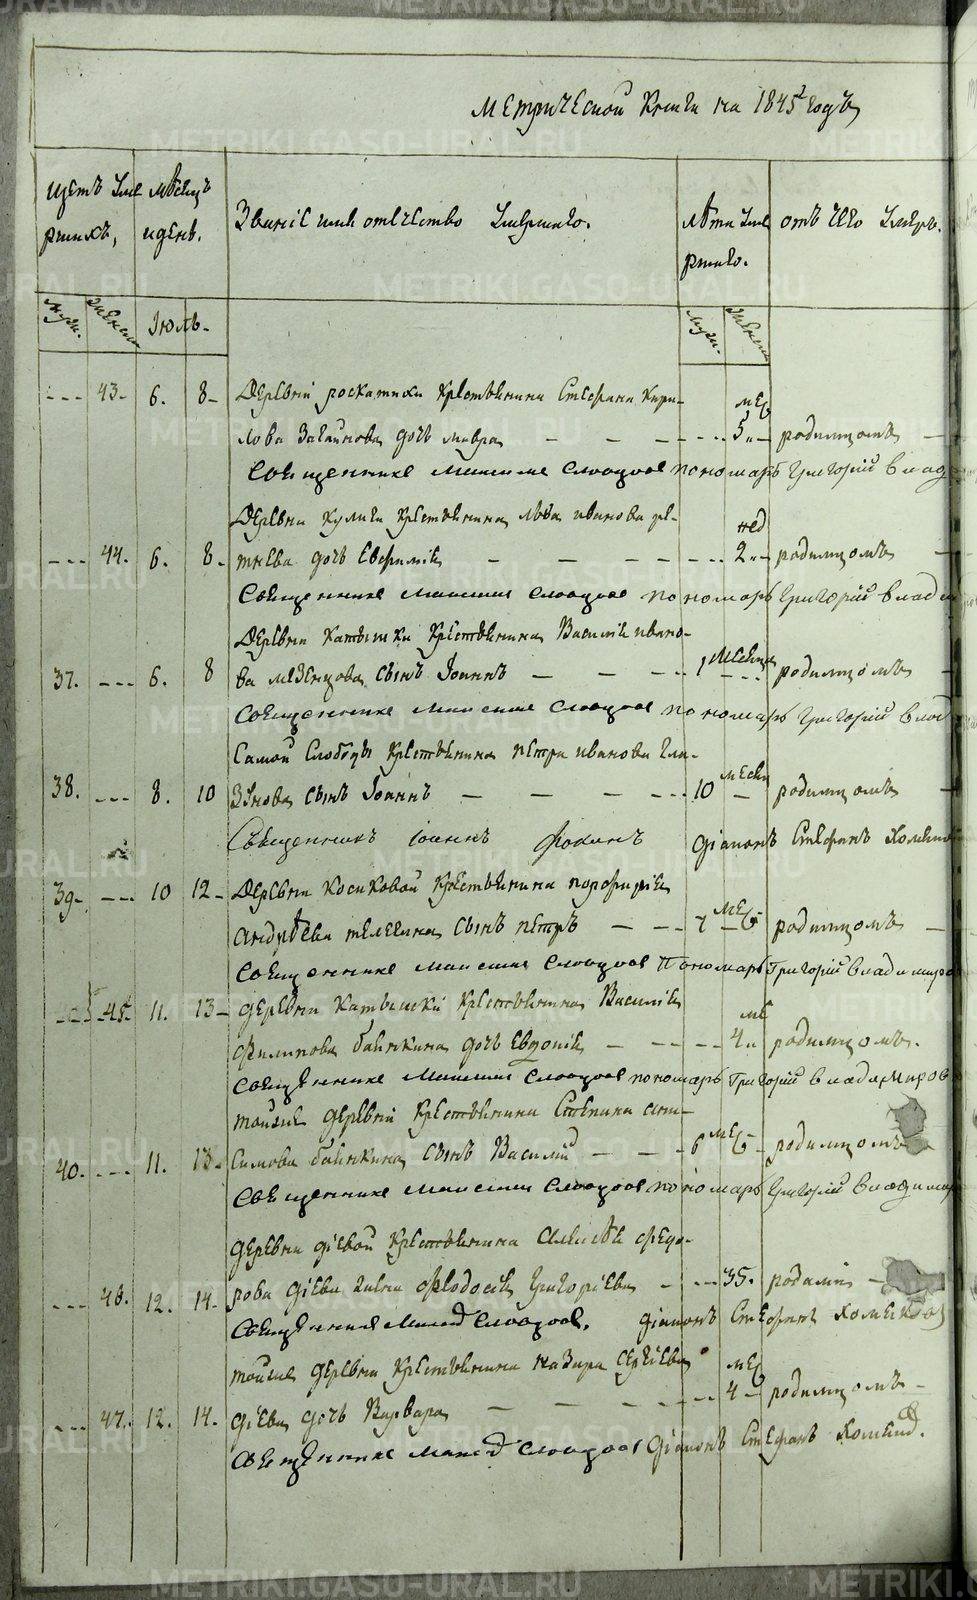 Метрической книги на 1845 годъ
щетъ умершихъ,
мѣсяцъ и день.
Званіе или отечество умершаго.
лѣта умершаго.
отъ чего умеръ.
муж. женска
Іюль.
муж. женска
43. 6. 8 Деревни роскатихи крестьянина Стефана Кири-
мес.
лова дочь мавра 5 родимцомъ
Священникъ Максимъ Словцовъ пономарь Григорій Влад
Деревни крестьянина льва иванова
нед
44. 6. 8. дочь Евфимія 2 родимцомъ
Священникъ Максимъ Словцовъ пономарь Григорій Влади
Деревни Катышки крестьянина Василія ивано-
37. 6. 8 ва мезенцова сынъ Іоаннъ 1 месяца родимцомъ
Священникъ Максимъ Словцовъ пономарь Григорій Влад
Самой Слободы крестьянина петра иванова Гла-
38. 8. 10 зунова сынъ Іоаннъ 10 месяц родимцомъ
Священникъ Іоаннъ Фокинъ діаконъ Стефанъ Хомяко
39. 10 12 Деревни Косиковой крестьянина порфирія
Андрѣева телегина сынъ петръ 7 мес родимцомъ
Священникъ Максимъ Словцовъ пономарь Григорій Владимиров
45. 11. 13 деревни Катышки крестьянина Василія
ме
Филипова байнкина дочь Евдокія 4 родимцомъ.
Священникъ Максимъ Словцовъ пономарь Григорій Владимиров
тойже деревни крестьянина Степана
40. 11. 13 симова байнкина сынъ Василій 6 мес родимцомъ
Священникъ Максимъ Словцовъ пономарь Григорій Владимир
деревни діевой крестьянина Алексѣя федо-
46. 12. 14 рова Діева жена Феодосія Григоріева 35. родами
Священникъ Словцовъ. діаконъ Стефанъ Хомяков
тойже деревни крестьянина назара сергіева
мес
47. 12. 14. діева дочь Варвара 4 родимцомъ
Священникъ Словцовъ діаконъ Стефанъ Хомяков.
METRIKI.GASO-URAL.RU